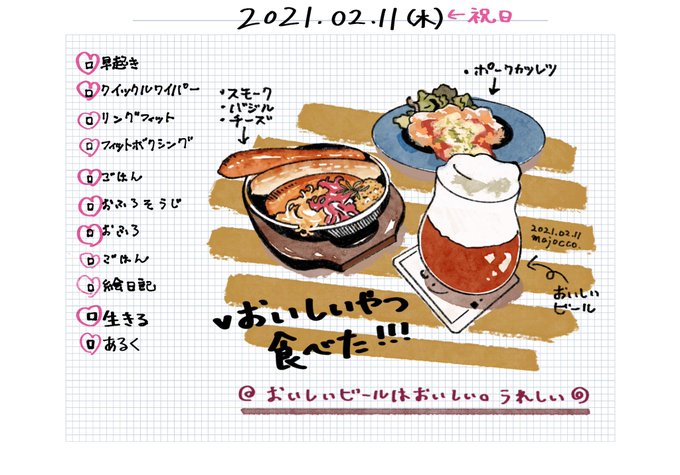 2021.02.11(木)←祝日
早起き
クイックルワイパー
リングフィット
フィットボクシング
ごはん
おふろそうじ
おふろ
ごはん
絵日記
生きる
あるく
・スモーク
・バジル
・チーズ
・ポークカツレツ
2021.02.11
mojocco.
おいしい
ビール
♥おいしいやつ
食べた!!!
おいしいビールはおいしい。うれしい